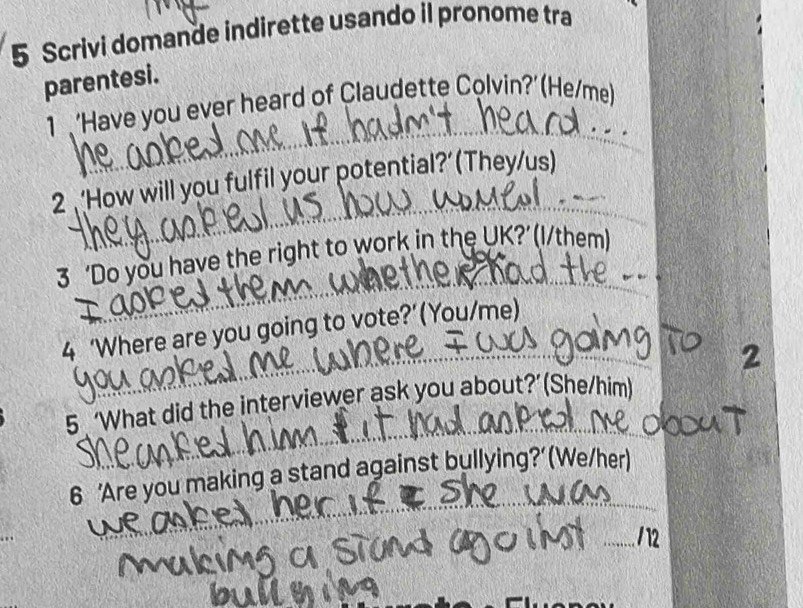 my
5 Scrivi domande indirette usando il pronome tra
parentesi.
1 'Have you ever heard of Claudette Colvin?' (He/me)
he asked me if hadn't heard...
2 'How will you fulfil your potential?' (They/us)
they asked us how would ...
3 'Do you have the right to work in the UK?' (I/them)
I asked them whether had the ...
4 'Where are you going to vote?' (You/me)
you asked me where I was going to
2
5 'What did the interviewer ask you about?' (She/him)
She asked him it had asked me about
6 'Are you making a stand against bullying?' (We/her)
we asked her if she was
making a stand against
....../12
bullying